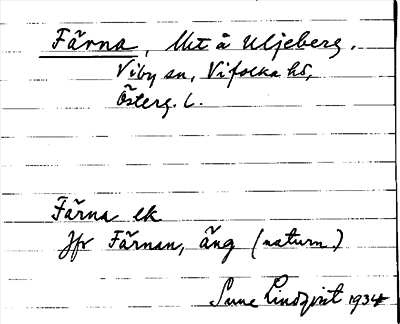 Färna, Urt å Uljeberg.
Viby sn, Vifolka hd,
Österg. l.
Färna ek
Jfr Färnan, äng (naturn.)
Sune Lindqvist 1934